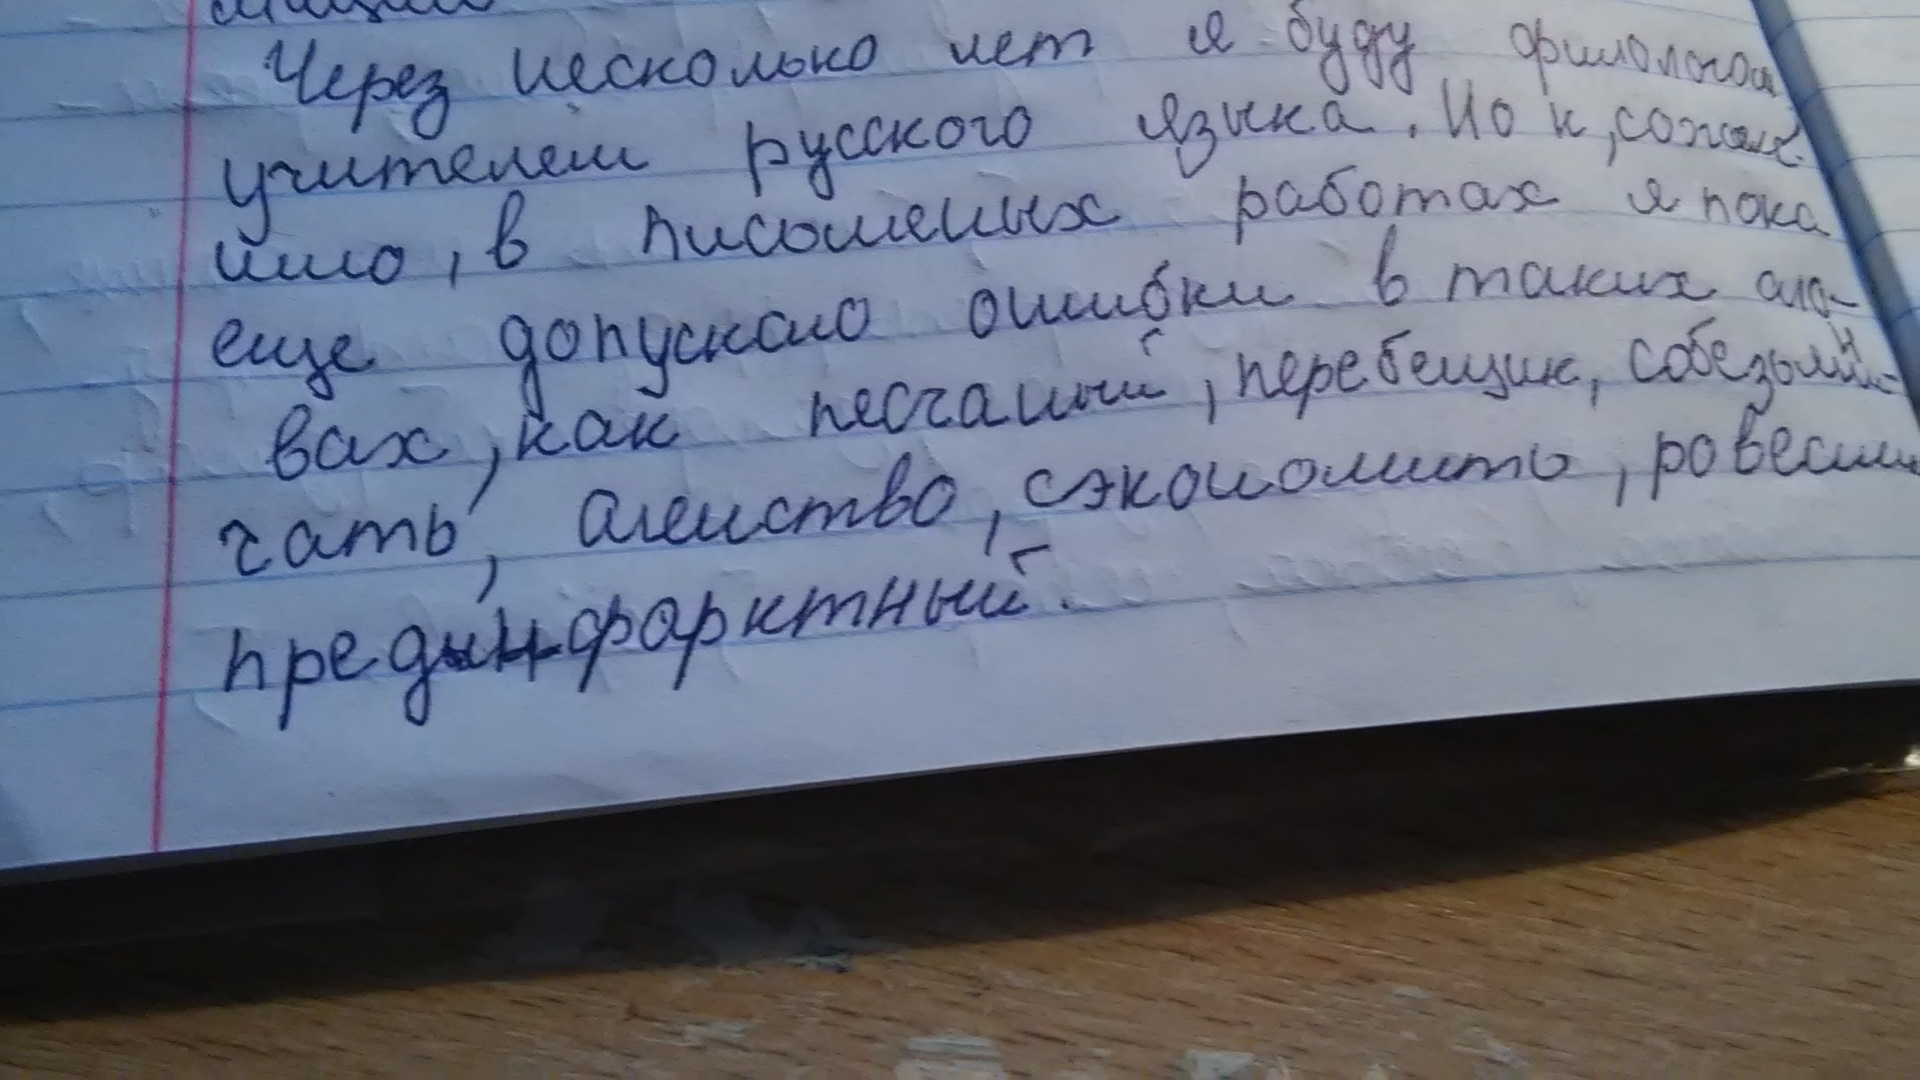 Через несколько лет я буду филологом
учителем русского языка. Но к, сожале
нию, в письменых работах я пока
еще допускаю ошибки в таких сло-
вах, как песчаный, перебещик, собезьянни-
чать, агенство, сэкономить, ровесник
предынфарктный.